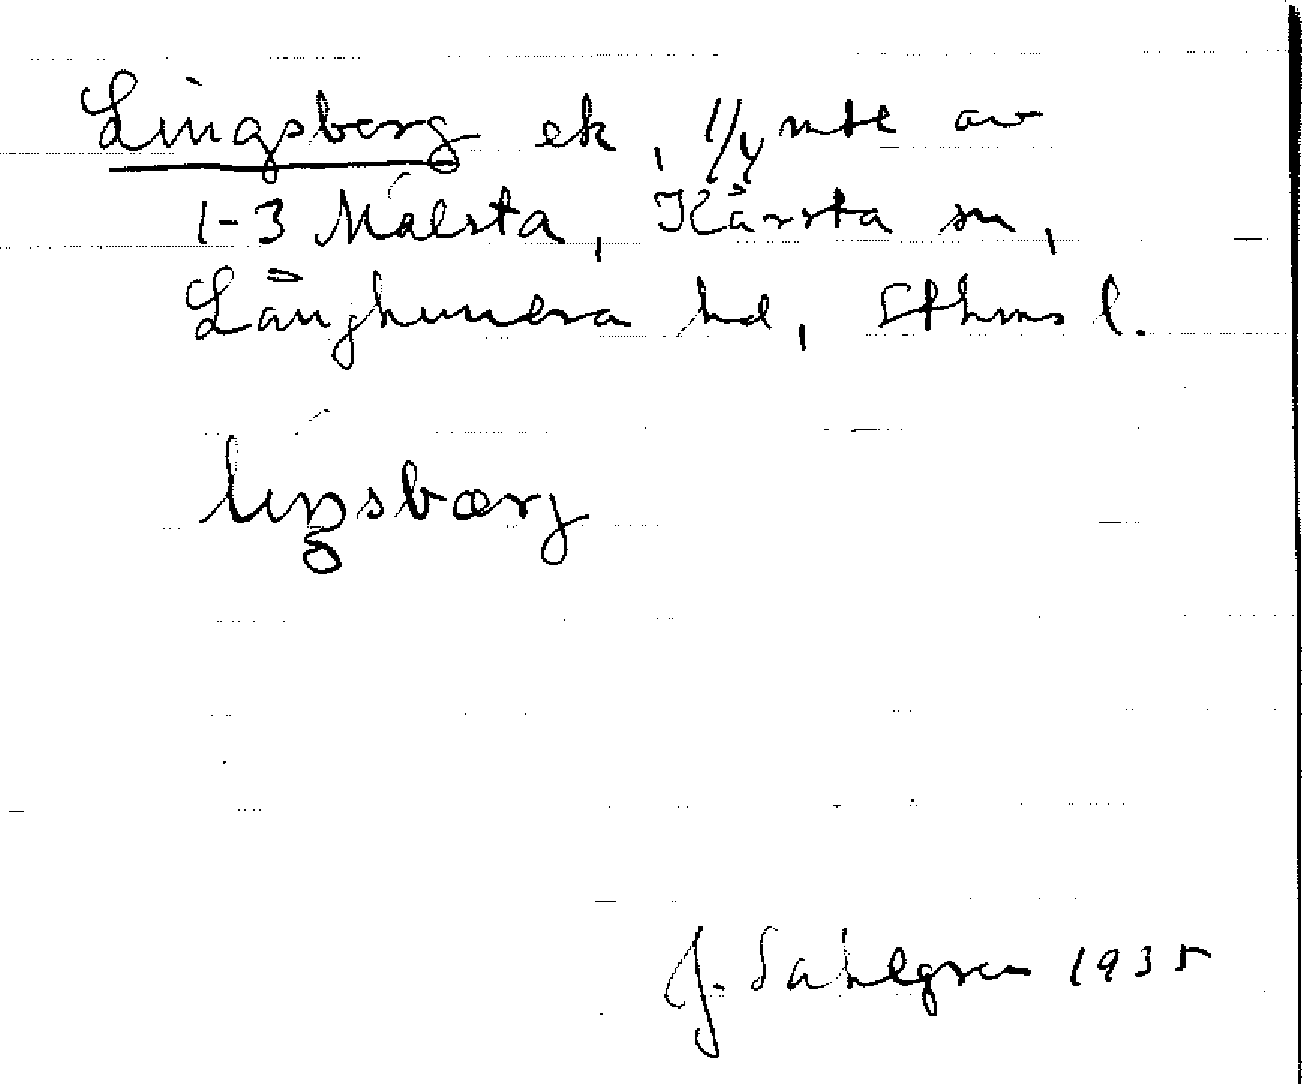 Lingsberg ek, 1/4 mtl av
1-3 Målsta, Kårsta sn,
Långhundra hd, Sthms l.
liŋsbærj
J. Sahlgren 1935